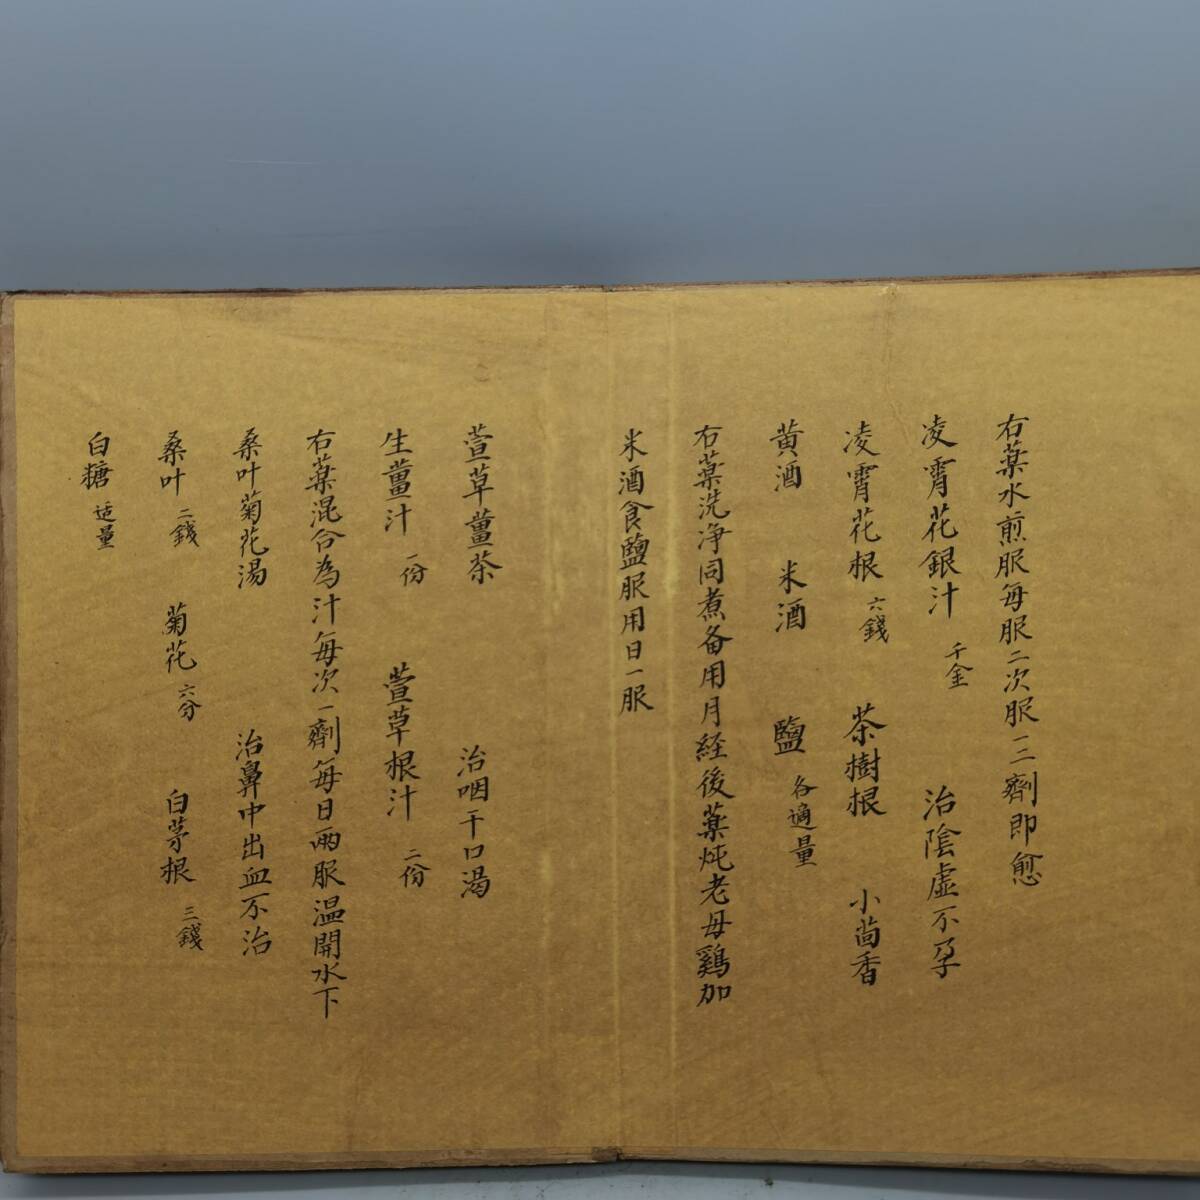 右藥水煎服每服二次服一二劑即愈
凌霄花銀汁 千金 治陰虛不孕
凌霄花根 六錢 茶樹根 小茴香
黄酒 米酒 鹽 各適量
右藥洗净同煮备用月经後藥炖老母鷄加
米酒食鹽服用日一服
萱草薑茶 治咽干口渴
生薑汁 一份 萱草根汁 二份
右藥混合為汁每次一劑每日兩服温開水下
桑叶菊花湯 治鼻中出血不治
桑叶 二錢 菊花 六分 白茅根 三錢
白糖 适量